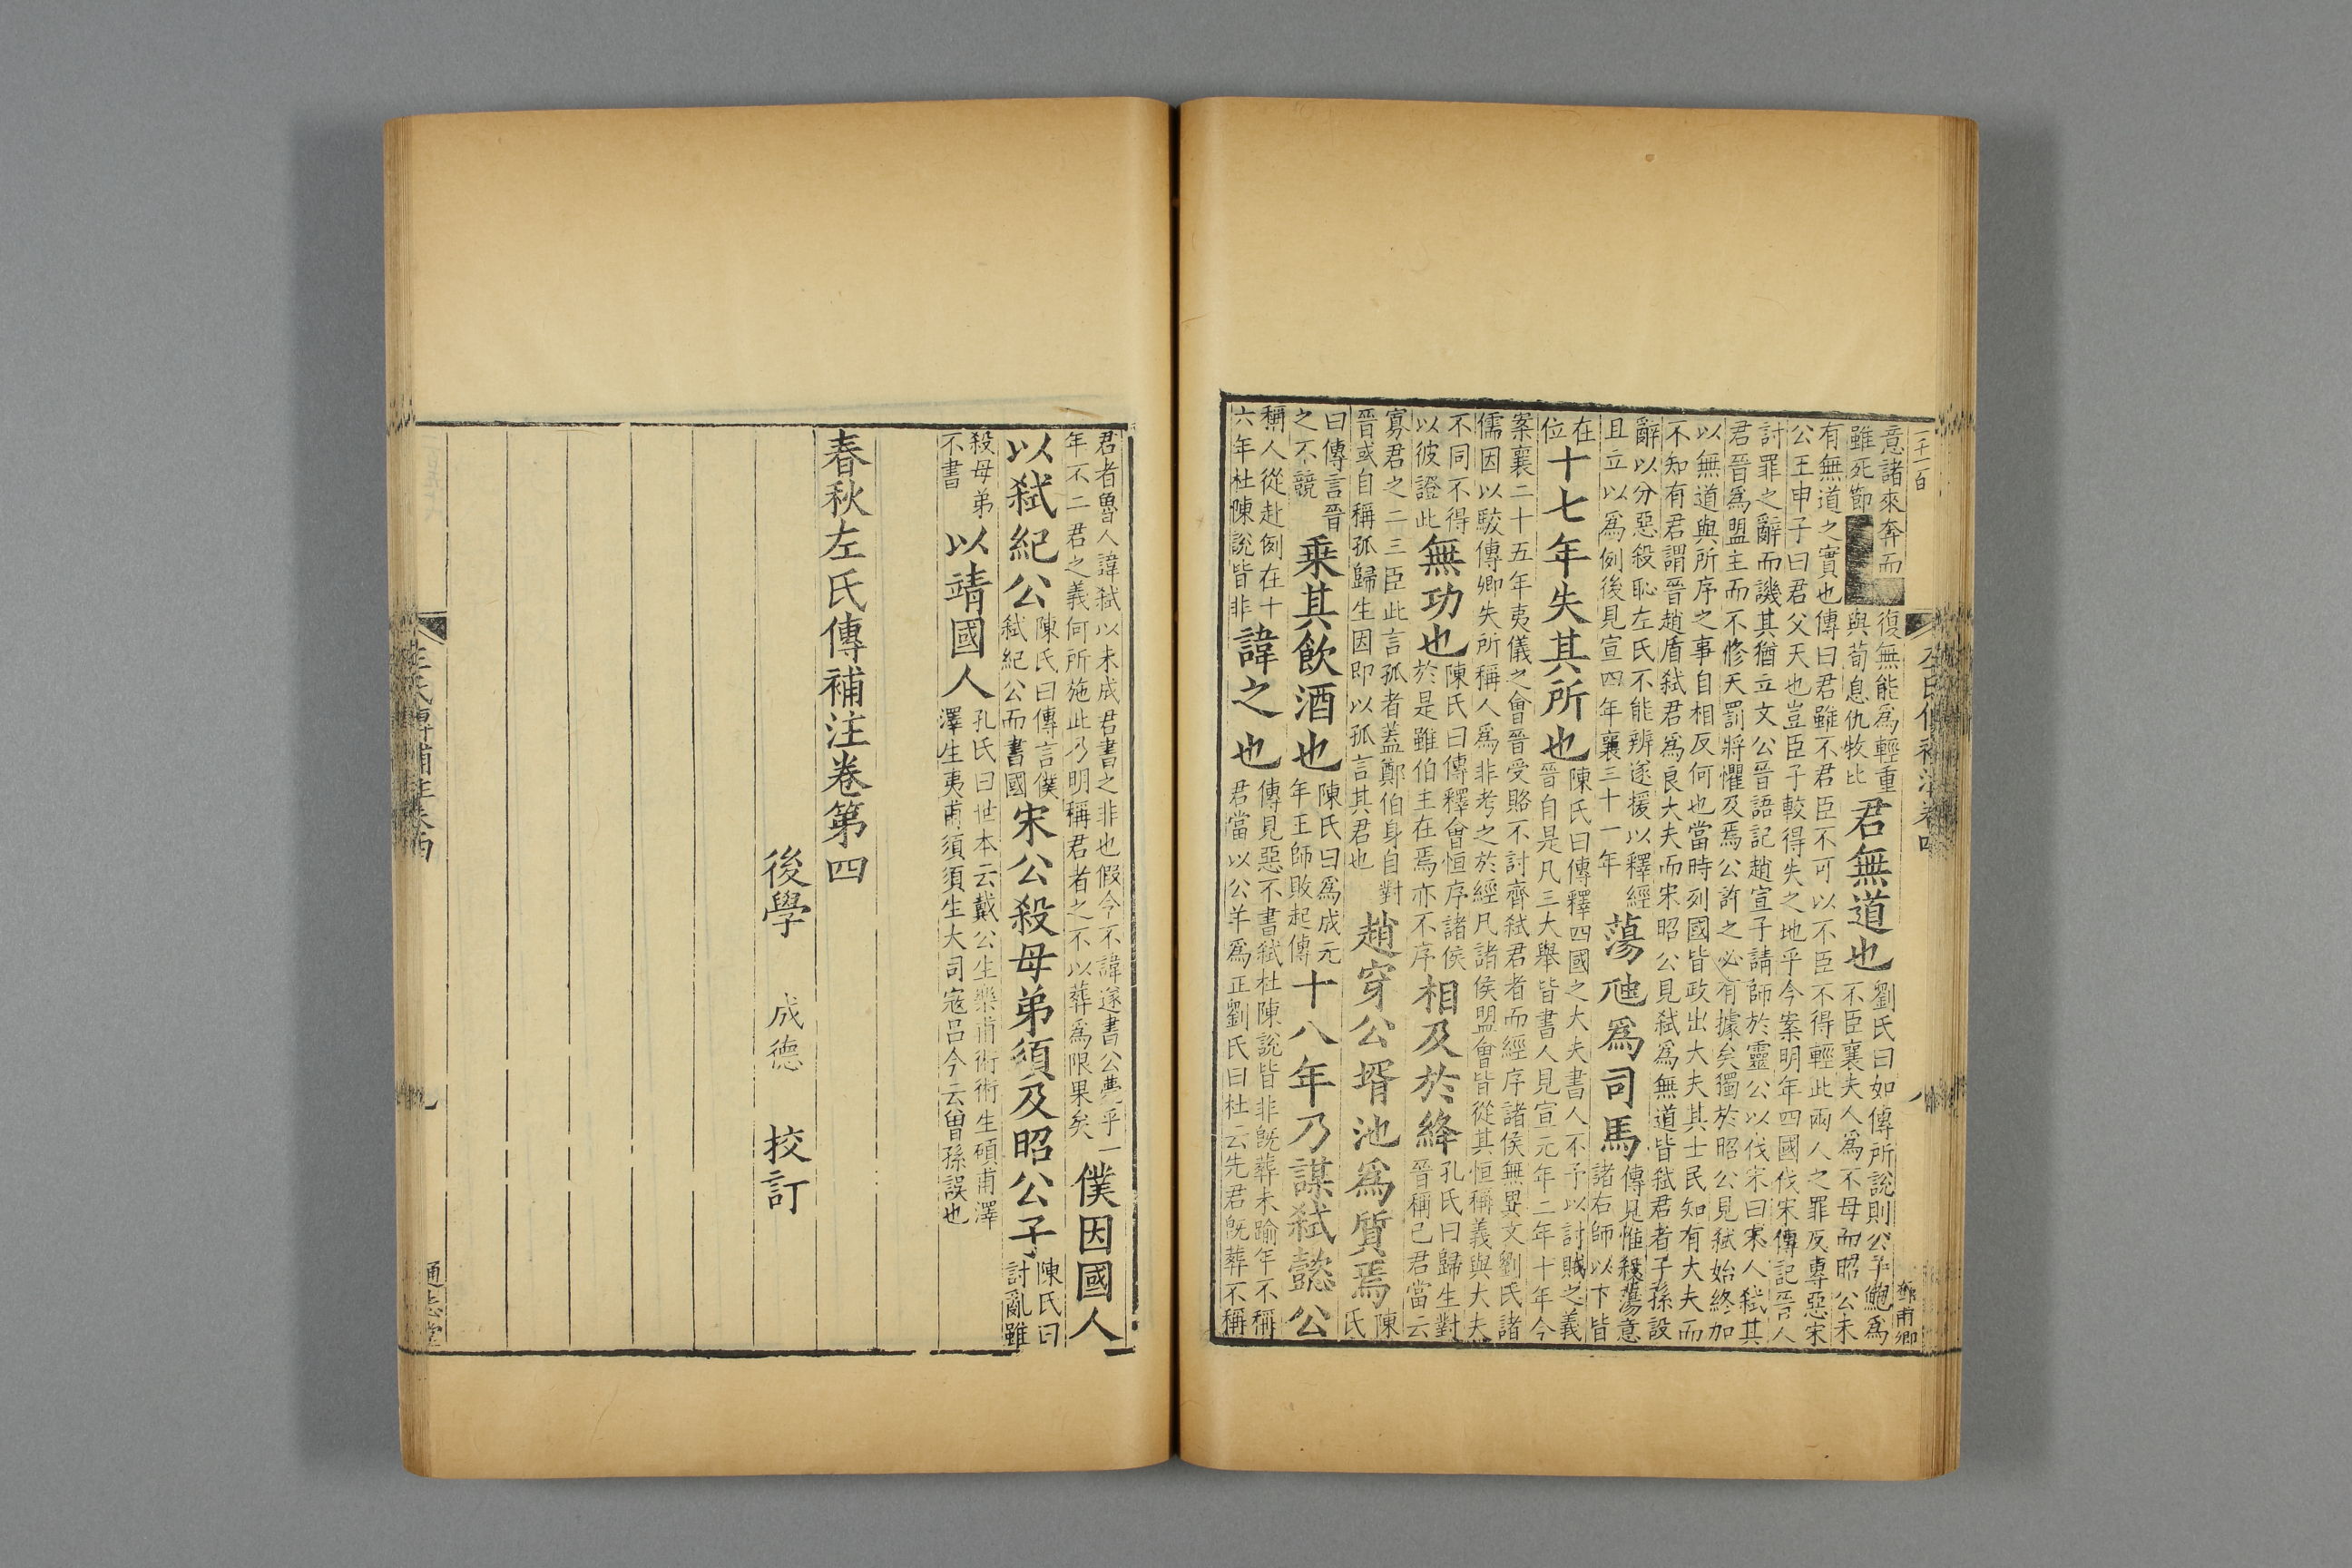 二十一百
左氏傳補注卷四
八
意諸來奔而復無能爲輕重
雖死節與荀息仇牧比
君無道也
劉氏曰如傳所說則公子鮑爲
不臣襄夫人爲不母而昭公未
有無道之實也傳曰君雖不君臣不可以不臣不得輕此兩人之罪反專惡宋
公王申子曰君父天也豈臣子較得失之地乎今案明年四國伐宋傳記晉人
討罪之辭而譏其猶立文公晉語記趙宣子請師於靈公以伐宋曰宋人弑其
君晉爲盟主而不修天罰將懼及焉公許之必有據矣獨於昭公見弑始終加
以無道與所序之事自相反何也當時列國皆政出大夫其士民知有大夫而
不知有君謂晉趙盾弑君爲良大夫而宋昭公見弑爲無道皆弑君者子孫設
辭以分惡殺恥左氏不能辨遂援以釋經
且立以爲例後見宣四年襄三十一年
蕩虺爲司馬
傳見惟殺蕩意
諸右師以下皆
在
位
十七年失其所也
陳氏曰傳釋四國之大夫書人不予以討賊之義
晉自是凡三大舉皆書人見宣元年二年十年今
案襄二十五年夷儀之會晉受賂不討齊弑君者而經序諸侯無異文劉氏諸
儒因以駁傳卿失所稱人爲非考之於經凡諸侯盟會皆從其恒稱義與大夫
不同不得
以彼證此
無功也
陳氏曰傳釋會恒序諸侯
於是雖伯主在焉亦不序
相及於絳
孔氏曰歸生對
晉稱己君當云
寡君之二三臣此言孤者蓋鄭伯身自對
晉或自稱孤歸生因即以孤言其君也
趙穿公壻池爲質焉
陳
氏
曰傳言晉
之不競
乗其飲酒也
陳氏曰爲成元
年王師敗起傳
十八年乃謀弑懿公
稱人從赴例在十
六年杜陳說皆非
諱之也
傳見惡不書弑杜陳說皆非旣葬未踰年不稱
君當以公羊爲正劉氏曰杜云先君旣葬不稱
君者魯人諱弑以未成君書之非也假令不諱遂書公薨乎一
年不二君之義何所施此乃明稱君者之不以葬爲限果矣
僕因國人
以弑紀公
陳氏曰傳言僕
弑紀公而書國
宋公殺母弟須及昭公子
陳氏曰
討亂雖
殺母弟
不書
以靖國人
孔氏曰世本云戴公生樂甫術術生碩甫澤
澤生夷甫須須生大司寇呂今云曾孫誤也
春秋左氏傳補注卷第四
後學 成德 校訂
左氏傳補注卷四
九
通志堂